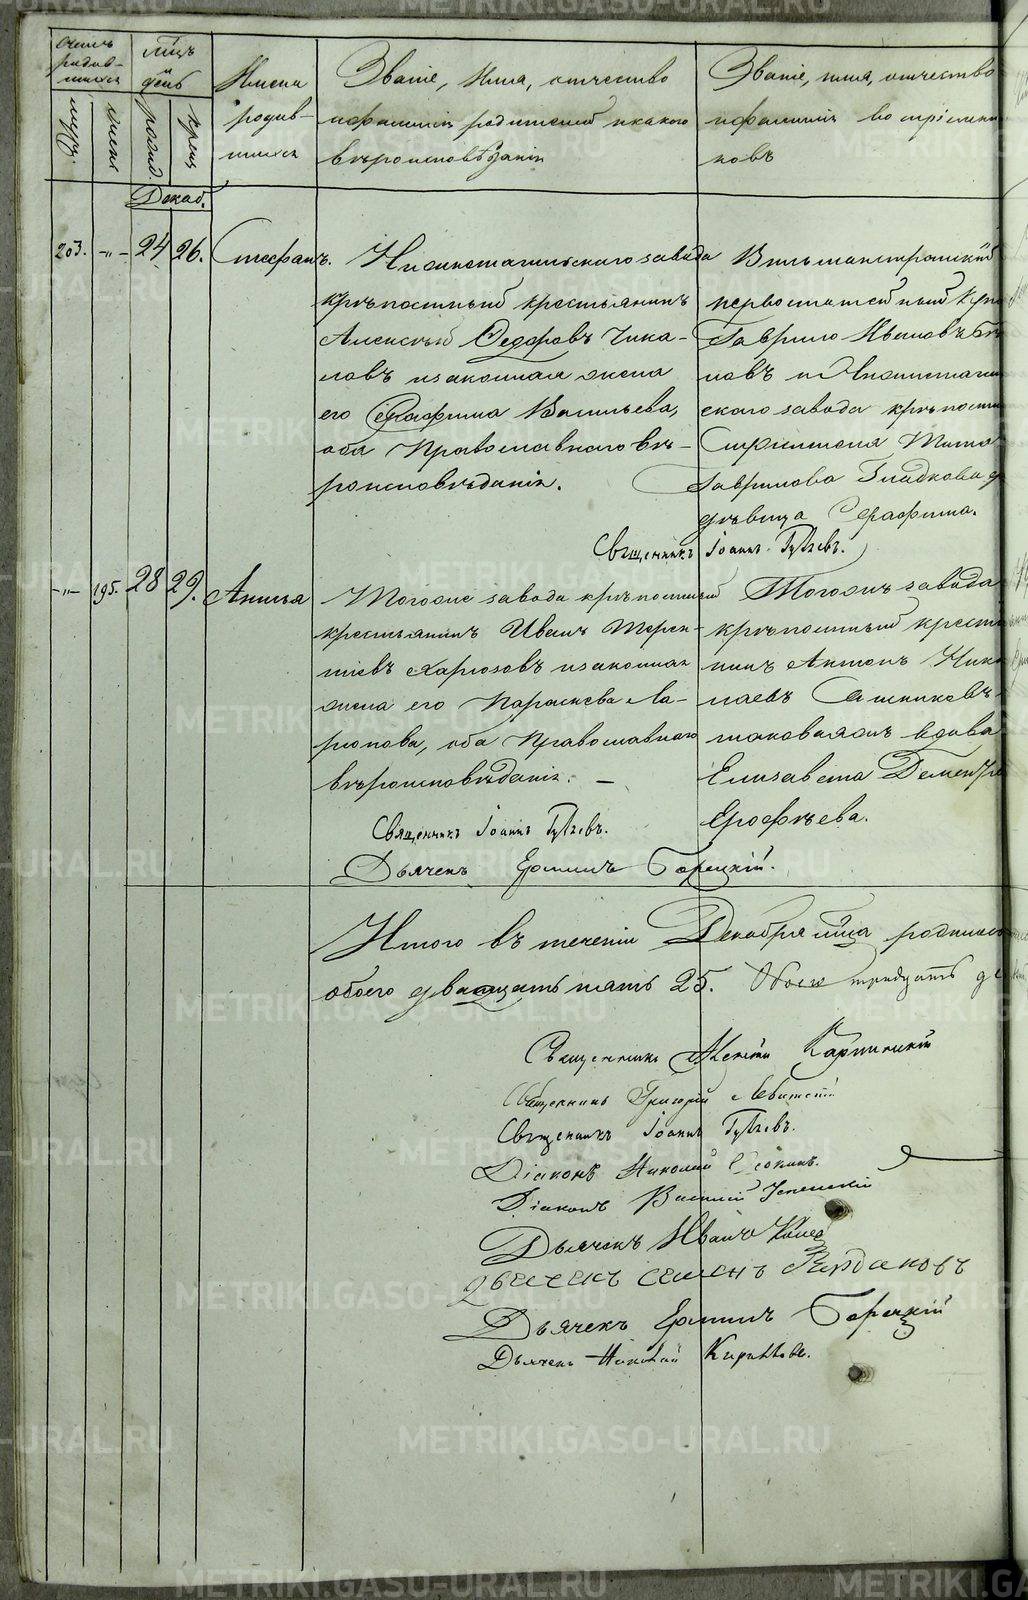 Счетъ родив-шихся
муж.
женск
Мѣцъ и день
рожд.
крещ
Имена родив-шихся
Званіе, имя, отчество
и фамилія родителей и какого
вѣроисповѣданія
Званіе, имя, отчество
и фамилія воспріемни
ковъ
Декаб.
203. -"- 24 26. Стефанъ.
Нижнетагильскаго завода
крѣпостный крестьянинъ
Алексѣй Федоровъ Чика-
ловъ и законная жена
его Серафима Васильева,
оба Православнаго вѣ-
роисповѣданія.
Вильманстрандскій
первостатейный Куп
Гаврило Ивановъ
новъ и Нижнетагил
скаго завода крѣпостн
Гаврилова Гладкова
дѣвица Серафима.
Священникъ Іоаннъ Гуляевъ.
-"- 195. 28 29. Анисья
Тогоже завода крѣпостный
крестьянинъ Иванъ Терен-
тіевъ Харюзовъ и законная
жена его Параскева Ла-
ріонова, оба Православнаго
вѣроисповѣданія. —
Тогожъ завода
крѣпостный крестья
нинъ Антонъ Нико
лаевъ
таковаяжъ вдова
Елизавета Дементье
Ерофѣева.
Священникъ Іоаннъ Гуляевъ.
Дьячекъ Ермилъ Борецкій.
Итого въ теченіи Декабря мѣца родилось
обоего двадцать пять 25.
Священникъ Карпинскій
Священникъ Григорій Левитскій
Священникъ Іоаннъ Гуляевъ.
Діаконъ Николай
Діаконъ Василій Успенскій
Дьячекъ Иванъ
Дьечекъ Семенъ
Дьячекъ Ермилъ Борецкій
Дьячекъ Николай
METRIKI.GASO-URAL.RU